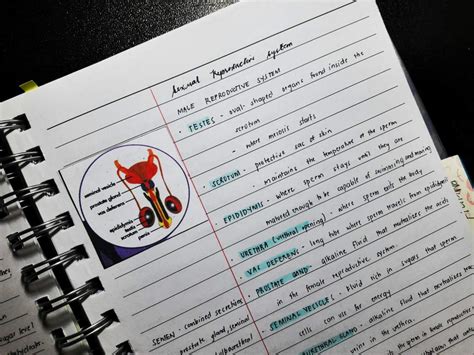 Animal Reproductive System
MALE REPRODUCTIVE SYSTEM
• TESTES - oval-shaped organs found inside the
scrotum
- where meiosis starts
• SCROTUM - protective sac of skin
- maintains the temperature of the sperm
• EPIDIDYMIS - where sperm stays until they are
matured enough to be capable of swimming and moving
• URETHRA (urethral opening) - where sperm exits the body
• VAS DEFERENS - long tube where sperm travels from epididymis
• PROSTATE GLAND - alkaline fluid that neutralizes the acids
in the female reproductive system.
• SEMINAL VESICLE - fluid rich in sugars that sperm
cells can use for energy
GLAND - alkaline fluid that neutralizes
in the urethra.
SEMEN - combined secretions
prostate gland, seminal
seminal vesicle
prostate gland
vas deferens
epididymis
testis
scrotum
penis
sugar level